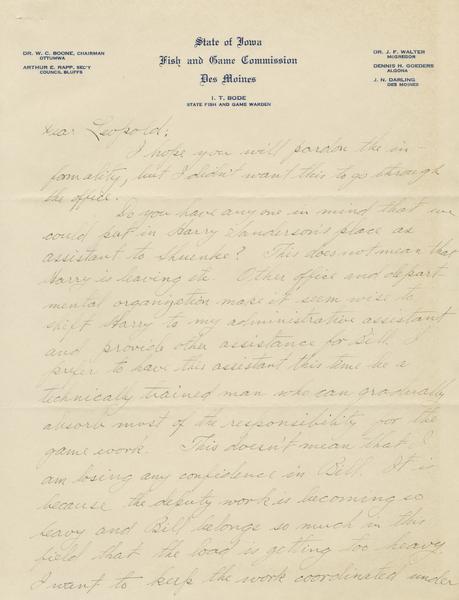 State of Iowa
Fish and Game Commission
Des Moines
DR. W. C. BOONE, CHAIRMAN
OTTUMWA
ARTHUR E. RAPP, SEC'Y
COUNCIL BLUFFS
DR. J. F. WALTER
MCGREGOR
DENNIS H. GOEDERS
ALGONA
J. N. DARLING
DES MOINES
I. T. BODE
STATE FISH AND GAME WARDEN
Dear Leopold;
I hope you will pardon the in-
formality, but I didn't want this to go through
the office.
Do you have anyone in mind that we
could put in Harry Sanderson's place as
assistant to Shuenke? This does not mean that
Harry is leaving etc. Other office and depart
mental organization make it seem wise to
shift Harry to my administrative assistant
and provide other assistance for Bill. I
prefer to have this assistant this time be a
technically trained man who can gradually
absorb most of the responsibility for the
game work. This doesn't mean that I
am losing any confidence in Bill. It is
because the deputy work is becoming so
heavy and Bill belongs so much in this
field that the load is getting too heavy.
I want to keep the work coordinated under